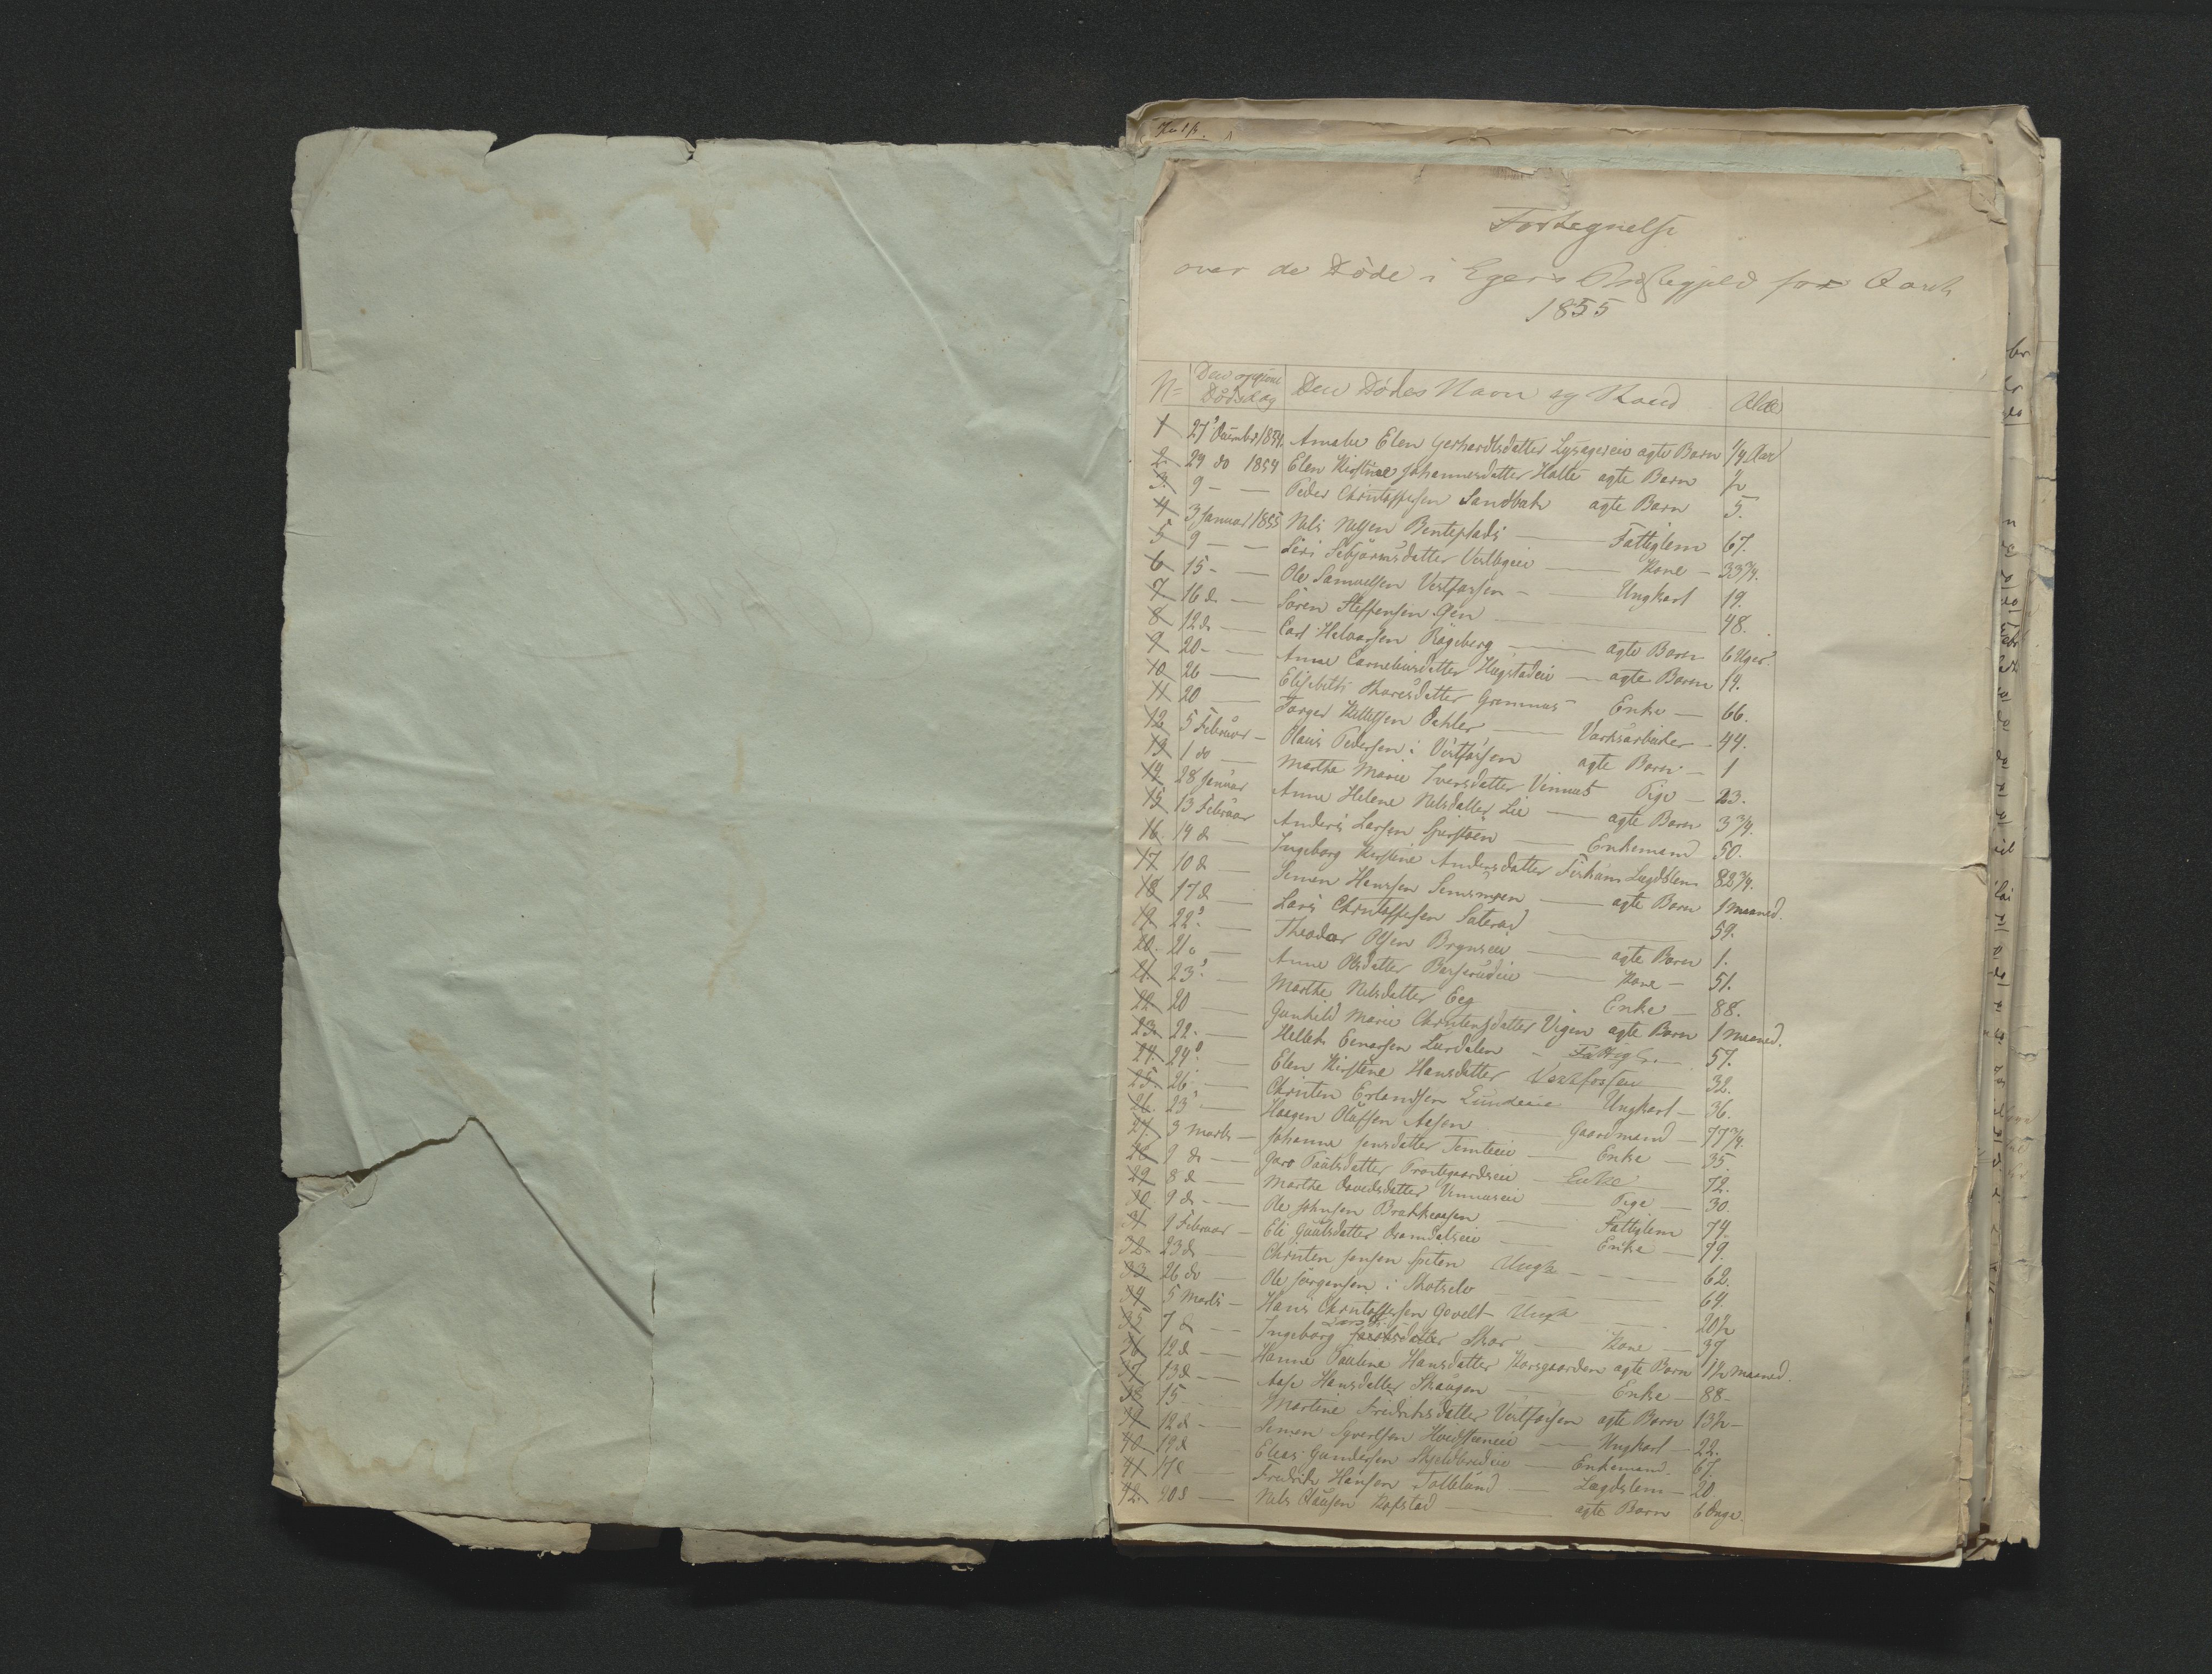 Fortegnelse
over de Døde i Egers Præstegjeld for Aaret
1855
N= Den opgivne Dødsdag Den Dødes Navn og Stand Alder
1 27 December 1854. Amalie Elen Gerhardtsdatter Lysagereie ægte Barn 1/4 Aar
2. 29 do 1854 Elen Kirstine Johannesdatter Holte ægte Barn ½
3. 9 - — Peder Christoffersen Sandbak ægte Barn 5.
4 3 Januar 1855 Nils Nilsen Benteplads — Fattiglem 67.
5 9 - — Siri Vestbyeie — Kone - 33¾.
6 15 - — Ole Samuelsen Vestfossen - — Ungkarl 19.
7. 16 d — Søren Steffensen Gen — 48.
8 12 d. — Carl Halvorsen Røgeberg — ægte Barn 6 Uger.
9 20 - — Anne Corneliusdatter Hugstadeie — ægte Barn 14.
10 26 — Elisabeth Thoresdatter — Enke — 66.
11 20 — Torger Kittilsen Dahler — Værksarbeider - 44.
12. 5 Februar — Olaus Pedersen i Vestfossen ægte Barn — 1
13 1 do — Marthe Marie Iversdatter Vinnes Pige — 23.
14 28 Januar Anne Helene Nilsdatter Lie — ægte Barn 3¾.
15 13 Februar Anders Larsen — Enkemand 50.
16. 14 d — Ingeborg Kirstine Andersdatter Lægdslem 82¾.
17 10 d — Simen Hansen — ægte Barn 1 maaned.
18 17 d — Lars Christoffersen Saterud — 59.
19. 22. — Theodor Olsen Brynseie — ægte Barn 1.
20. 21. — Anne Olsdatter — Kone - 51.
21. 23. — Marthe Nilsdatter Eeg — Enke — 88.
22. 20 — Gunhild Marie Christensdatter Vigen ægte Barn 1 maaned.
23. 22. — Hellek Enersen Lurdalen - Fattigl. — 57.
24. 24. — Elen Kirstine Hansdatter Vestfossen 32.
25. 26 — Christen Erlandsen Lundeeie Ungkarl — 36.
26. 23 — Haagen Olufsen Aasen — Gaardmand — 77¾.
27. 3 Marts — Johanne Jensdatter Temteeie — Enke — 35.
28 1 d. — Paulsdatter — Enke — 72.
29. 8 d — Marthe Davidsdatter Vinnuseie — Pige — 30.
30. 9 d - — Ole Johnsen — Fattiglem 74.
31 1 Februar — Eli Gulsdatter Dramdalseie — Enke — 79.
32. 23 d. — Christen Jensen Ungk — 62.
33 26 do — Ole Jørgensen i Skotselv — 64.
34 5 Marts — Hans Christoffersen Ungk — 20½
35 7 d — Ingeborg Larsd. Skar — Kone — 37
36 12 d — Hanne Pauline Hansdatter Korsgaarden ægte Barn 1½ maaned.
37. 13 d - — Aase Hansdatter Skaugen — Enke — 88 -
38 15 — Martine Fredriksdatter Vestfossen ægte Barn 13½ -
39 12 d. — Simen Syvertsen — Ungkarl — 22.
40 19 d — Elias Gundersen — Enkemand. 67.
41 17 d — Fredrik Hansen — Lægdslem — 20
42. 20 d — Nils Olausen Kopstad — ægte Barn 6 Dage.